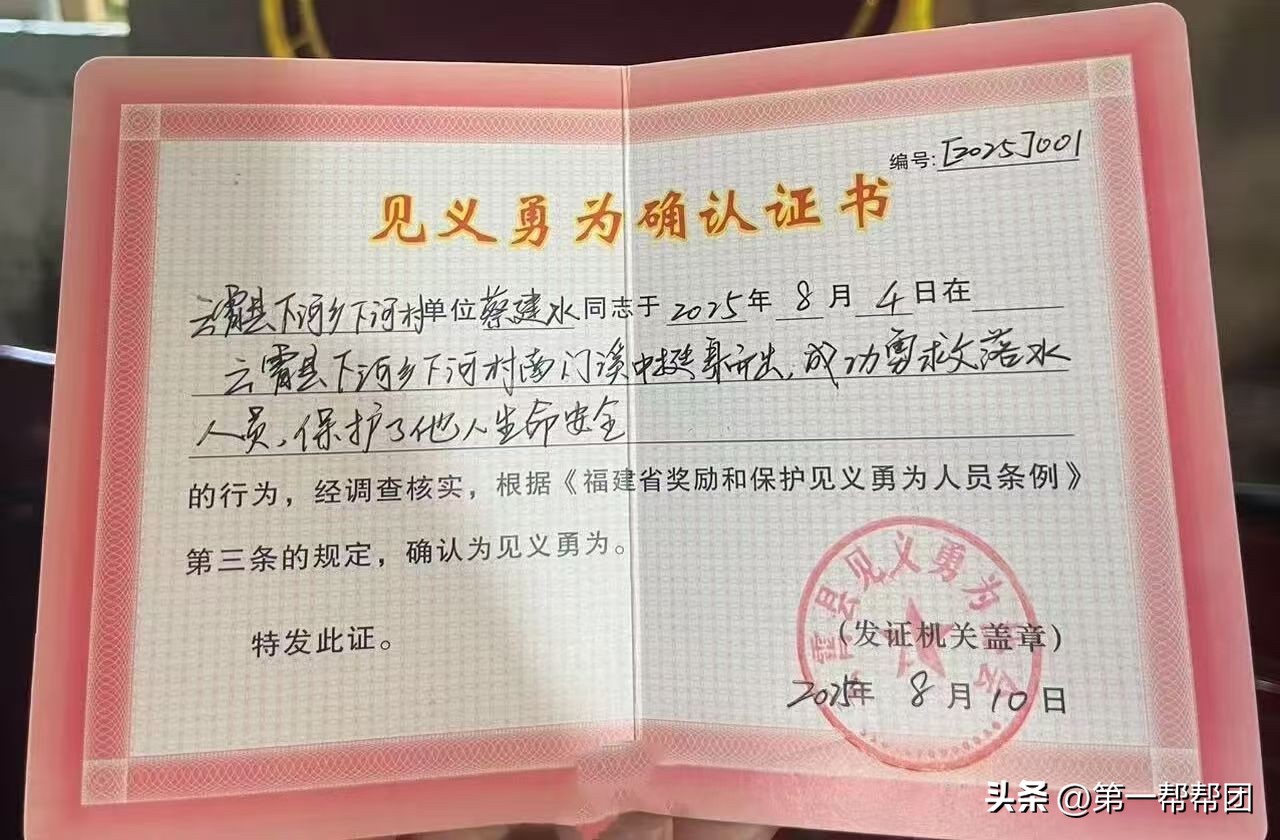 编号:[2025]001
见义勇为确认证书
云霄县下河乡下河村单位蔡建水同志于2025年8月4日在
云霄县下河乡下河村南门溪中挺身而出,成功勇救落水
人员,保护了他人生命安全
的行为，经调查核实，根据《福建省奖励和保护见义勇为人员条例》
第三条的规定，确认为见义勇为。
特发此证。
霄县见义勇为
会
(发证机关盖章)
2025年8月10日
头条 @第一帮帮团